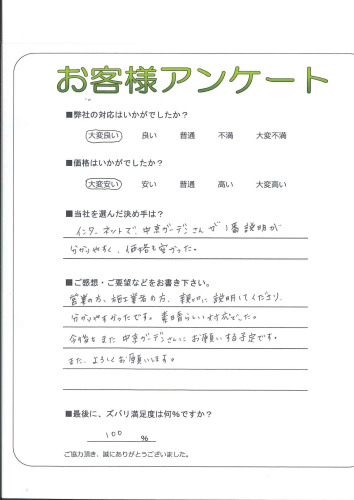 お客様アンケート
■弊社の対応はいかがでしたか？
大変良い 良い 普通 不満 大変不満
■価格はいかがでしたか？
大変安い 安い 普通 高い 大変高い
■当社を選んだ決め手は？
インターネットで、中京ガーデンさんが1番説明が
分かりやすく、価格も安かった。
■ご感想・ご要望などをお書き下さい。
営業の方、施工業者の方、親切に説明してくださり、
分かりやすかったです。素晴らしい対応でした。
今後もまた中京ガーデンさんにお願いする予定です。
また、よろしくお願いします。
■最後に、ズバリ満足度は何％ですか？
100 %
ご協力頂き、誠にありがとうございました。